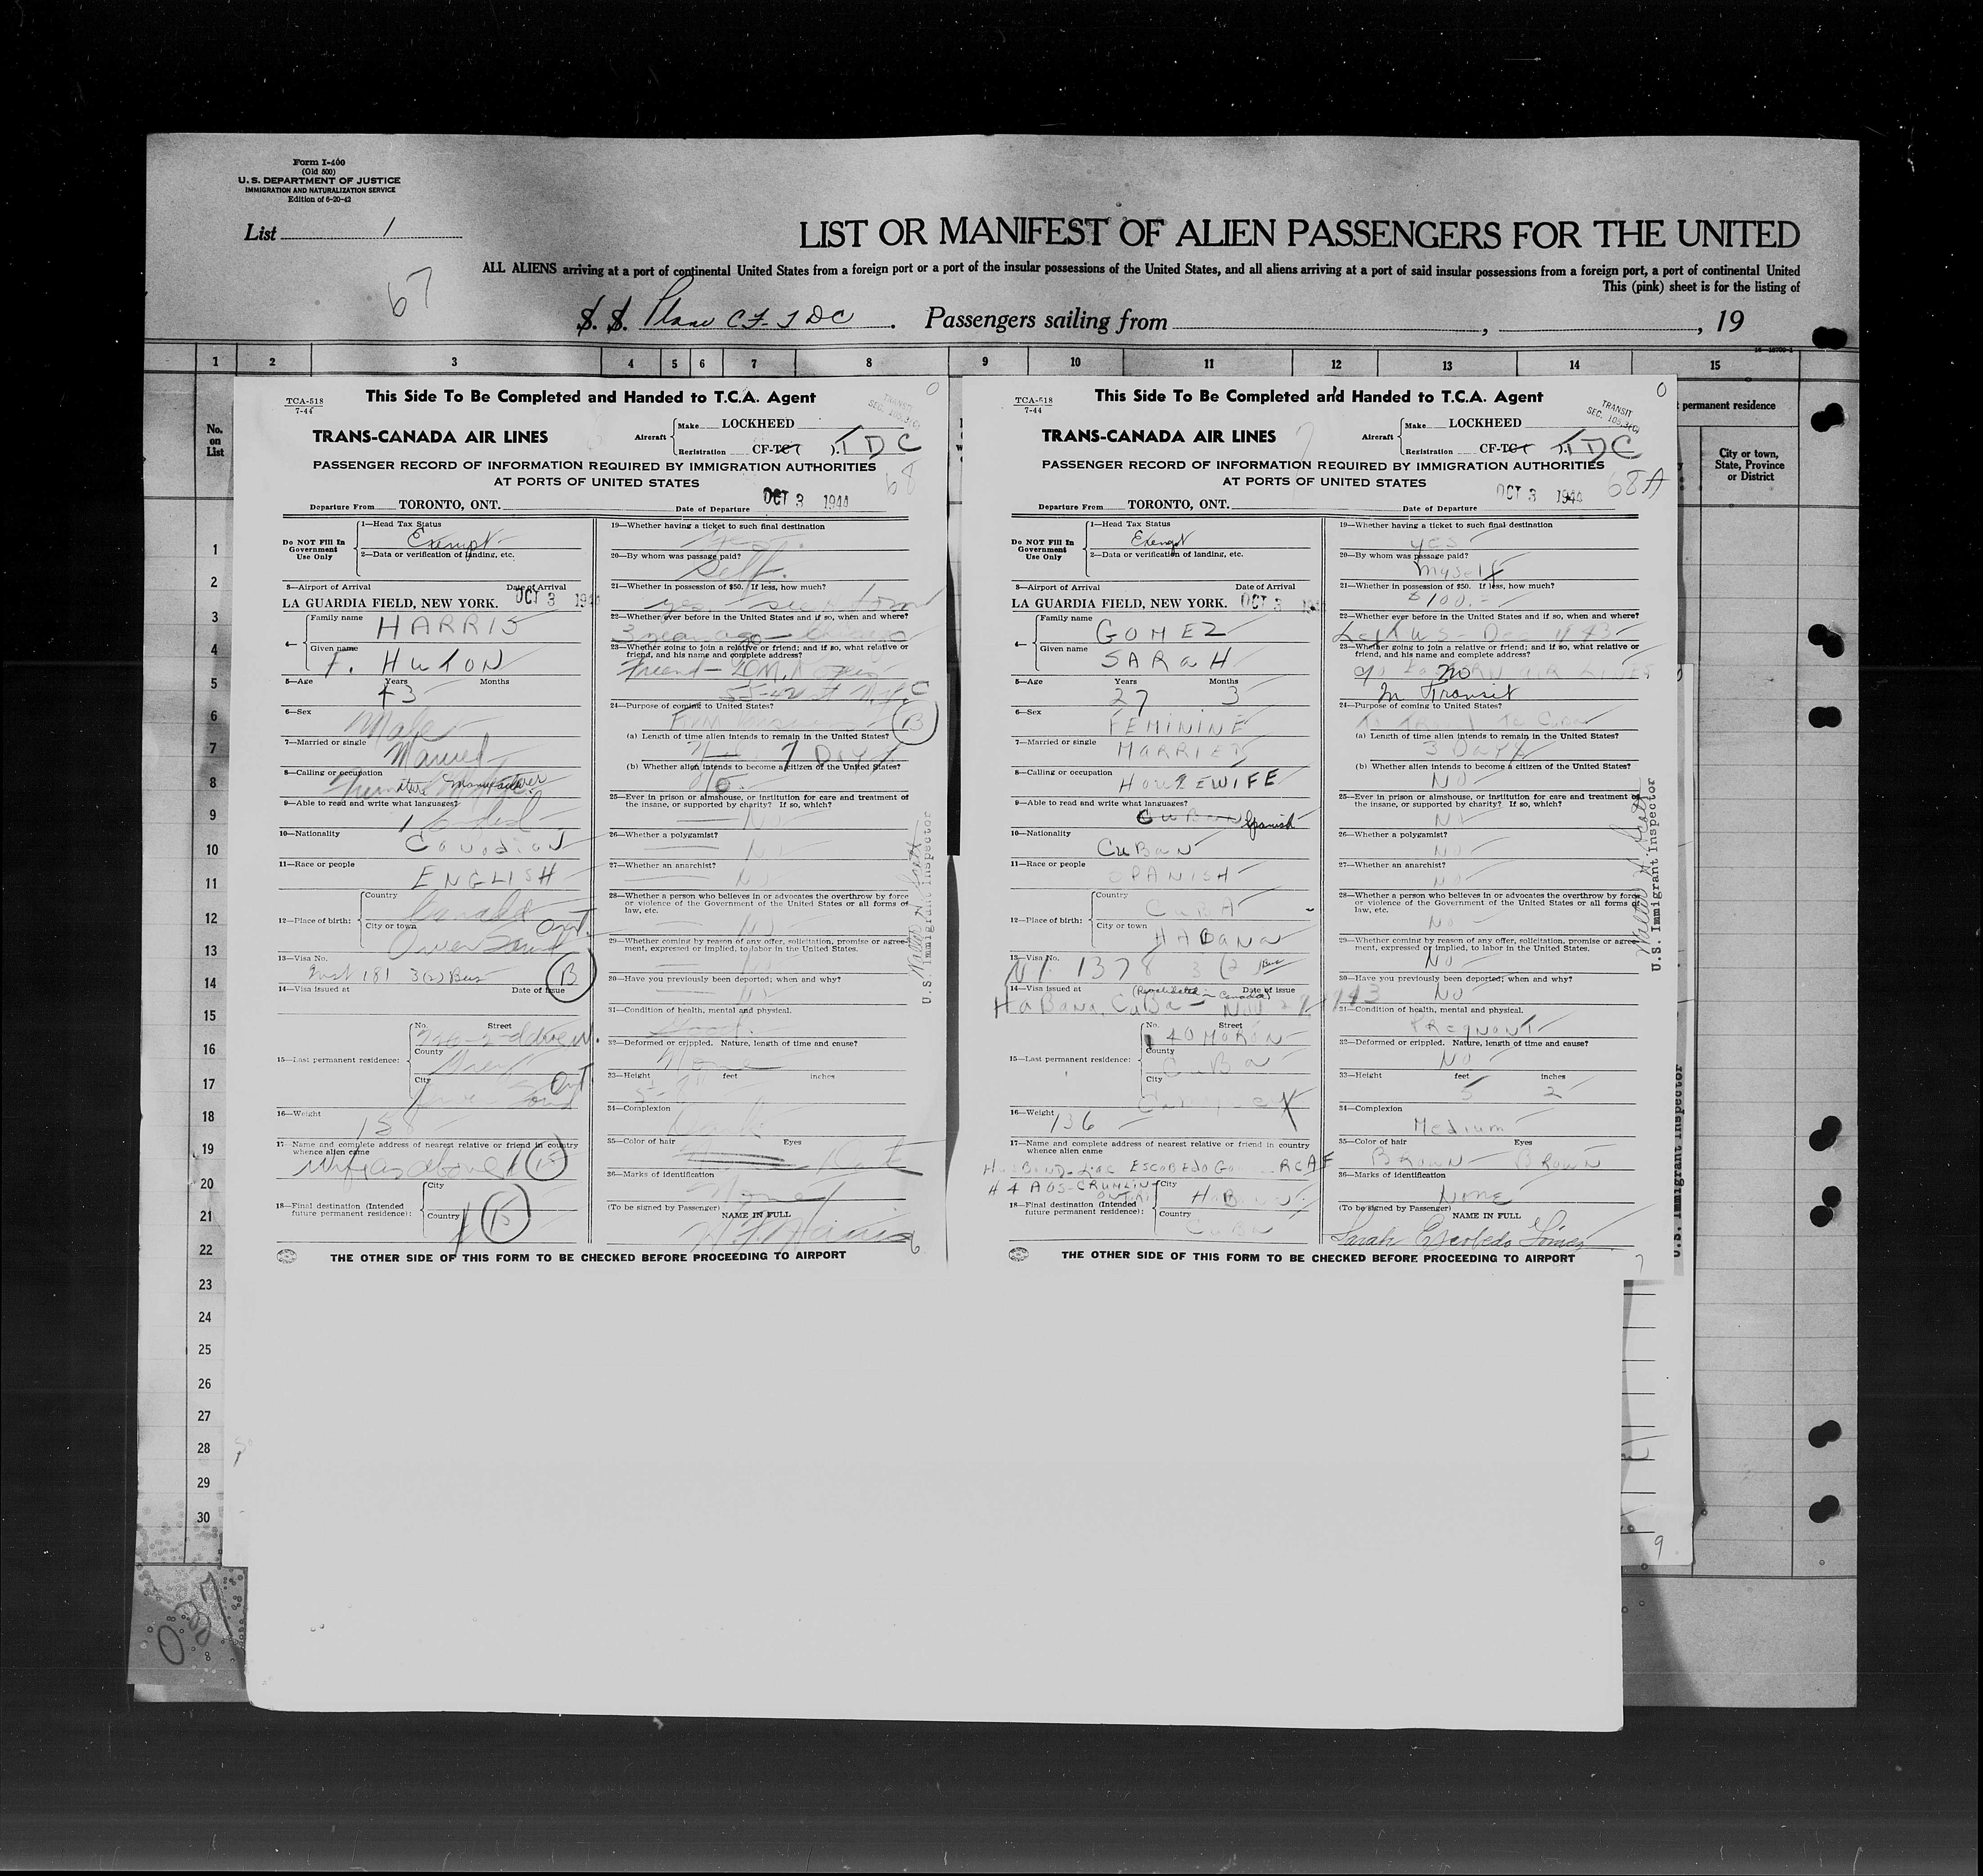 Form I-400
(Old 500)
U. S. DEPARTMENT OF JUSTICE
IMMIGRATION AND NATURALIZATION SERVICE
Edition of 6-20-42
List 1
67
LIST OR MANIFEST OF ALIEN PASSENGERS FOR THE UNITED
ALL ALIENS arriving at a port of continental United States from a foreign port or a port of the insular possessions of the United States, and all aliens arriving at a port of said insular possessions from a foreign port, a port of continental United
This (pink) sheet is for the listing of
S. S. Plane CF-TDC . Passengers sailing from , , 19
1 2 3 4 5 6 7 8 9 10 11 12 13 14 15
No.
on
List
permanent residence
City or town,
State, Province
or District
1
2
3
4
5
6
7
8
9
10
11
12
13
14
15
16
17
18
19
20
21
22
23
24
25
26
27
28
29
30
TCA-518
7-44
This Side To Be Completed and Handed to T.C.A. Agent
0
TRANSIT
SEC. 105.3(C)
TRANS-CANADA AIR LINES
Aircraft
Make LOCKHEED
Registration CF-TCT TDC
PASSENGER RECORD OF INFORMATION REQUIRED BY IMMIGRATION AUTHORITIES
AT PORTS OF UNITED STATES
68
Departure From TORONTO, ONT. Date of Departure OCT 3 1944
Do NOT Fill In
Government
Use Only
1—Head Tax Status
Exempt
2—Data or verification of landing, etc.
3—Airport of Arrival Date of Arrival
LA GUARDIA FIELD, NEW YORK. OCT 3 194
4—
Family name
HARRIS
Given name
F. HUTON
5—Age Years Months
43
6—Sex
Male
7—Married or single
Married
8—Calling or occupation
Furniture Manufacturer
9—Able to read and write what languages?
10—Nationality
Canadian
11—Race or people
ENGLISH
12—Place of birth:
Country
Canada
City or town
Owen Sound Ont.
13—Visa No.
181 3(2) Bus B
14—Visa issued at Date of issue
15—Last permanent residence:
No. Street
County
Grey
City
Owen Sound Ont
16—Weight
158
17—Name and complete address of nearest relative or friend in country
whence alien came
Wife as above 15
18—Final destination (Intended
future permanent residence):
City
Country
15
19—Whether having a ticket to such final destination
Yes.
20—By whom was passage paid?
Self.
21—Whether in possession of $50. If less, how much?
yes.
22—Whether ever before in the United States and if so, when and where?
3 years ago — Chicago
23—Whether going to join a relative or friend; and if so, what relative or
friend, and his name and complete address?
no
Friend —
N.Y.C
24—Purpose of coming to United States?
B
(a) Length of time alien intends to remain in the United States?
7 Days
(b) Whether alien intends to become a citizen of the United States?
No.
25—Ever in prison or almshouse, or institution for care and treatment of
the insane, or supported by charity? If so, which?
No
26—Whether a polygamist?
No
27—Whether an anarchist?
No
28—Whether a person who believes in or advocates the overthrow by force
or violence of the Government of the United States or all forms of
law, etc.
No
29—Whether coming by reason of any offer, solicitation, promise or agree-
ment, expressed or implied, to labor in the United States.
30—Have you previously been deported; when and why?
31—Condition of health, mental and physical.
Good.
32—Deformed or crippled. Nature, length of time and cause?
None
33—Height feet inches
34—Complexion
Dark
35—Color of hair Eyes
36—Marks of identification
None
(To be signed by Passenger)
NAME IN FULL
6
U.S. Immigrant Inspector
THE OTHER SIDE OF THIS FORM TO BE CHECKED BEFORE PROCEEDING TO AIRPORT
TCA-518
7-44
This Side To Be Completed and Handed to T.C.A. Agent
0
TRANSIT
SEC. 105.3(C)
TRANS-CANADA AIR LINES
Aircraft
Make LOCKHEED
Registration CF-TCT TDC
PASSENGER RECORD OF INFORMATION REQUIRED BY IMMIGRATION AUTHORITIES
AT PORTS OF UNITED STATES
68A
Departure From TORONTO, ONT. Date of Departure OCT 3 1944
Do NOT Fill In
Government
Use Only
1—Head Tax Status
Exempt
2—Data or verification of landing, etc.
3—Airport of Arrival Date of Arrival
LA GUARDIA FIELD, NEW YORK. OCT 3
4—
Family name
GOMEZ
Given name
SARAH
5—Age Years Months
27 3
6—Sex
FEMININE
7—Married or single
MARRIED
8—Calling or occupation
HOUSEWIFE
9—Able to read and write what languages?
CUBAN Spanish
10—Nationality
CUBAN
11—Race or people
SPANISH
12—Place of birth:
Country
CUBA
City or town
HABANA
13—Visa No.
1378 3 (2) Bus
14—Visa issued at (Revalidated in Canada) Date of issue
HABANA, CUBA — Nov 29/1943
15—Last permanent residence:
No. Street
40 MORON
County
CUBA
City
16—Weight
136
17—Name and complete address of nearest relative or friend in country
whence alien came
HUSBAND - LAC ESCOBEDO RCAF
# 4 AOS-CRUMLIN
18—Final destination (Intended
future permanent residence):
City
HABANA
Country
CUBA
19—Whether having a ticket to such final destination
YES
20—By whom was passage paid?
myself
21—Whether in possession of $50. If less, how much?
$100.—
22—Whether ever before in the United States and if so, when and where?
Left U S — Dec 1943
23—Whether going to join a relative or friend; and if so, what relative or
friend, and his name and complete address?
no
In Transit
24—Purpose of coming to United States?
(a) Length of time alien intends to remain in the United States?
3 DAYS
(b) Whether alien intends to become a citizen of the United States?
NO
25—Ever in prison or almshouse, or institution for care and treatment of
the insane, or supported by charity? If so, which?
NO
26—Whether a polygamist?
NO
27—Whether an anarchist?
NO
28—Whether a person who believes in or advocates the overthrow by force
or violence of the Government of the United States or all forms of
law, etc.
NO
29—Whether coming by reason of any offer, solicitation, promise or agree-
ment, expressed or implied, to labor in the United States.
NO
30—Have you previously been deported; when and why?
NO
31—Condition of health, mental and physical.
PREGNANT
32—Deformed or crippled. Nature, length of time and cause?
NO
33—Height feet inches
5 2
34—Complexion
Medium
35—Color of hair Eyes
BROWN — BROWN
36—Marks of identification
NONE
(To be signed by Passenger)
NAME IN FULL
Sarah Escobedo Gomez
7
U.S. Immigrant Inspector
THE OTHER SIDE OF THIS FORM TO BE CHECKED BEFORE PROCEEDING TO AIRPORT
U.S. Immigrant Inspector
9